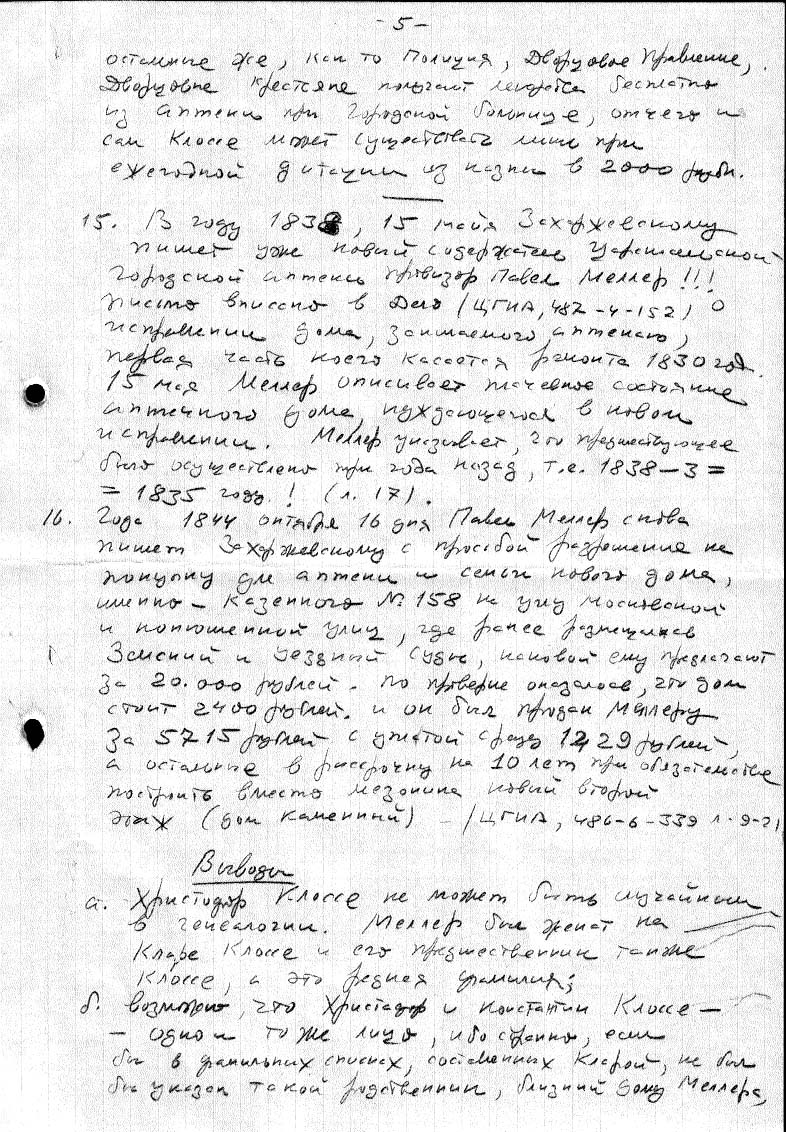 - 5 -
остальные же, как то Полиция, Дворцовое Правление,
Дворцовые крестьяне получают лекарства бесплатно
из аптеки при Городской больнице, отчего и
сам Клоссе может существовать лишь при
ежегодной дотации из казны в 2000 рубл.
15. В году 1838, 15 майя Захаржевскому
пишет уже новый содержатель Царскосельской
городской аптеки провизор Павел Меллер!!!
Письмо вписано в Дело /ЦГИА, 487-4-152/ О
исправлении дома, занимаемого аптекою,
первая часть коего касается ремонта 1830 год.
15 мая Меллер описывает плачевное состояние
аптечного дома, нуждающегося в новом
исправлении. Меллер указывает, что предшествующее
было осуществлено три года назад, т.е. 1838-3=
= 1835 году! (л. 17).
16. Года 1844 октября 16 дня Павел Меллер снова
пишет Захаржевскому с просьбой разрешения на
покупку для аптеки и семьи нового дома,
именно - Казенного № 158 на углу Московской
и Конюшенной улиц, где ранее размещался
Земский и Уездный Суды, каковой ему предлагают
за 20.000 рублей. По проверке оказалось, что дом
стоит 2400 рублей. и он был продан Меллеру
за 5715 рублей с уплатой сразу 1229 рублей,
а остальные в рассрочку на 10 лет при обязательстве
построить вместо мезонина новый второй
этаж (дом каменный) - /ЦГИА, 486-6-339 л. 9-21
Выводы
а. Христофор Клоссе не может быть случайным
в генеалогии. Меллер был женат на
Кларе Клоссе и его предшественник также
Клоссе, а это редкая фамилия;
б. возможно, что Христофор и Константин Клоссе -
- одно и то же лицо, ибо странно, если
бы в фамильных списках, составленных Кларой, не был
бы указан такой родственник, близкий дому Меллера,